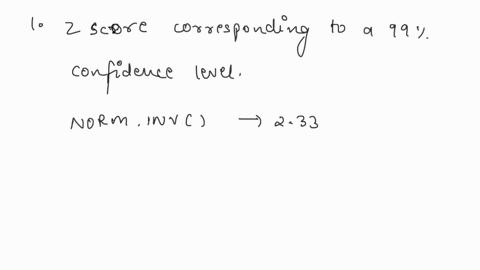 1. Z score corresponding to a 99%.
confidence level.
NORM.INV() → 2.33